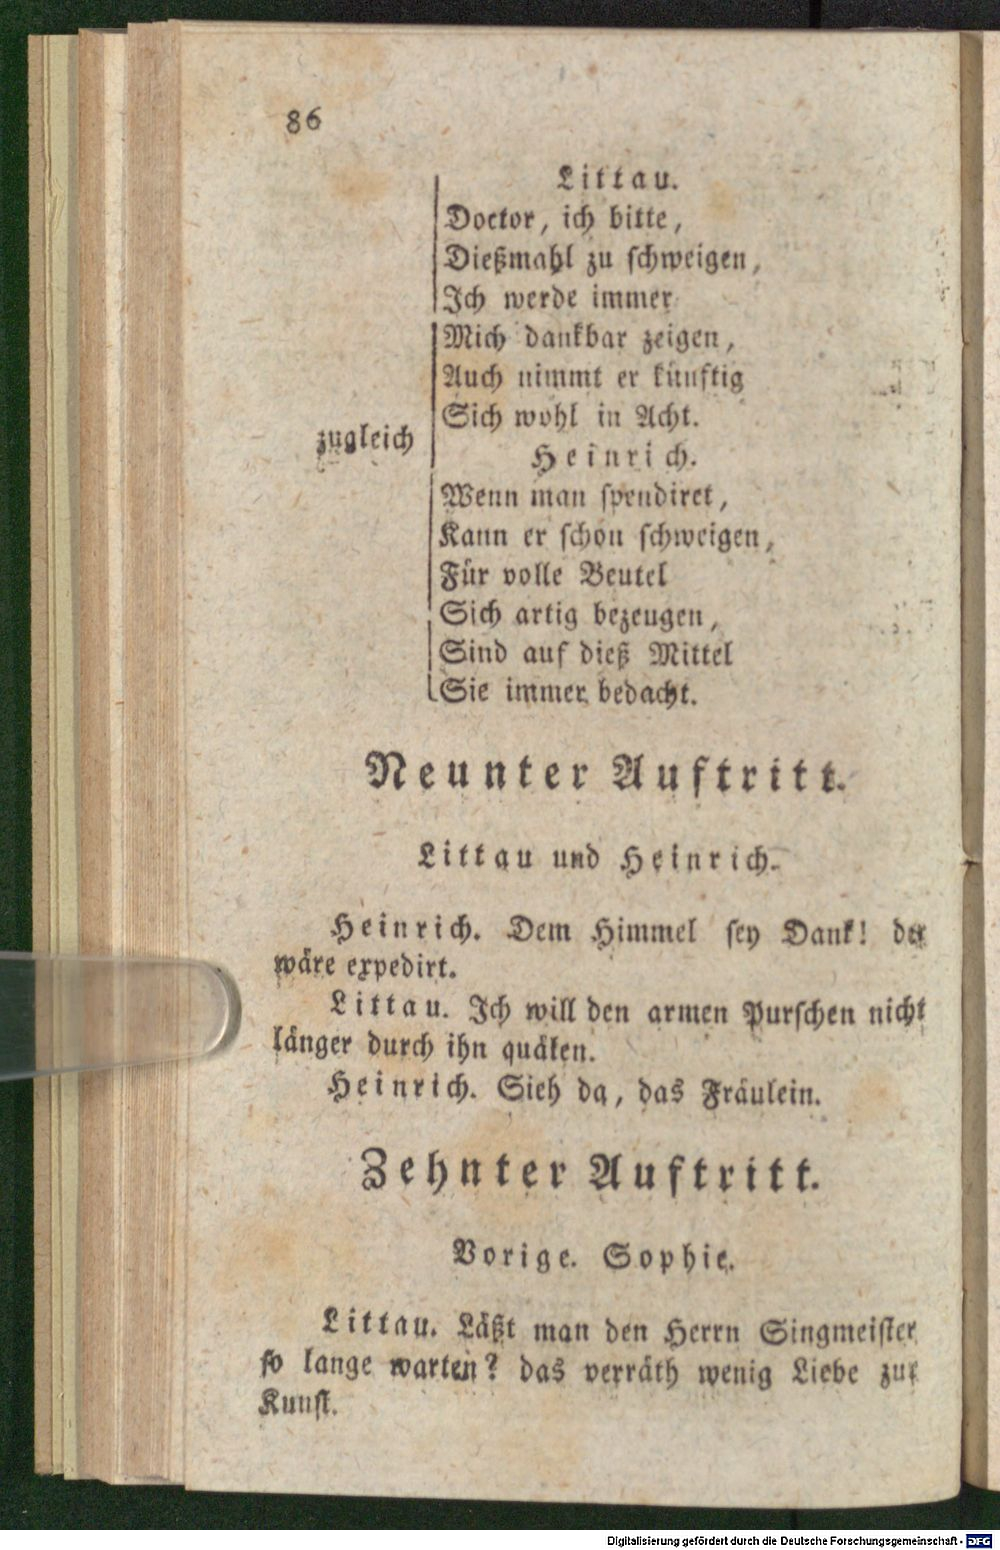 86
Littau.
Doctor, ich bitte,
Dießmahl zu schweigen,
Ich werde immer
Mich dankbar zeigen,
Auch nimmt er künftig
Sich wohl in Acht.
zugleich
Heinrich.
Wenn man spendiret,
Kann er schon schweigen,
Für volle Beutel
Sich artig bezeugen,
Sind auf dieß Mittel
Sie immer bedacht.
Neunter Auftritt.
Littau und Heinrich.
Heinrich. Dem Himmel sey Dank! der
wäre expedirt.
Littau. Ich will den armen Purschen nicht
länger durch ihn quälen.
Heinrich. Sieh da, das Fräulein.
Zehnter Auftritt.
Vorige. Sophie.
Littau. Läßt man den Herrn Singmeister
so lange warten? das verräth wenig Liebe zur
Kunst.
Digitalisierung gefördert durch die Deutsche Forschungsgemeinschaft - DFG